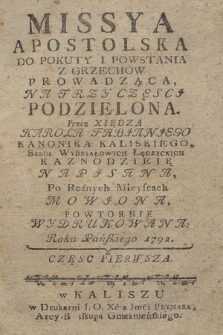 MISSYA
APOSTOLSKA
DO POKUTY I POWSTANIA
Z GRZECHOW
PROWADZĄCA,
NA TRZY CZĘSCI
PODZIELONA.
Przez XIĘDZA
KAROLA FABIANIEGO
KANONIKA KALISKIEGO,
SZKOŁ WYDZIAŁOWYCH ŁĘCZYCKICH
KAZNODZIEIĘ
NAPISANA,
Po Rożnych Mieyscach
MOWIONA,
POWTORNIE
WYDRUKOWANA,
Roku Pańskiego 1792.
CZĘSC PIERWSZA.
w KALISZU
w Drukarni J. O. Xcia Jmci PRYMASA,
Arcy-B iskupa Gnieznieńskiego.